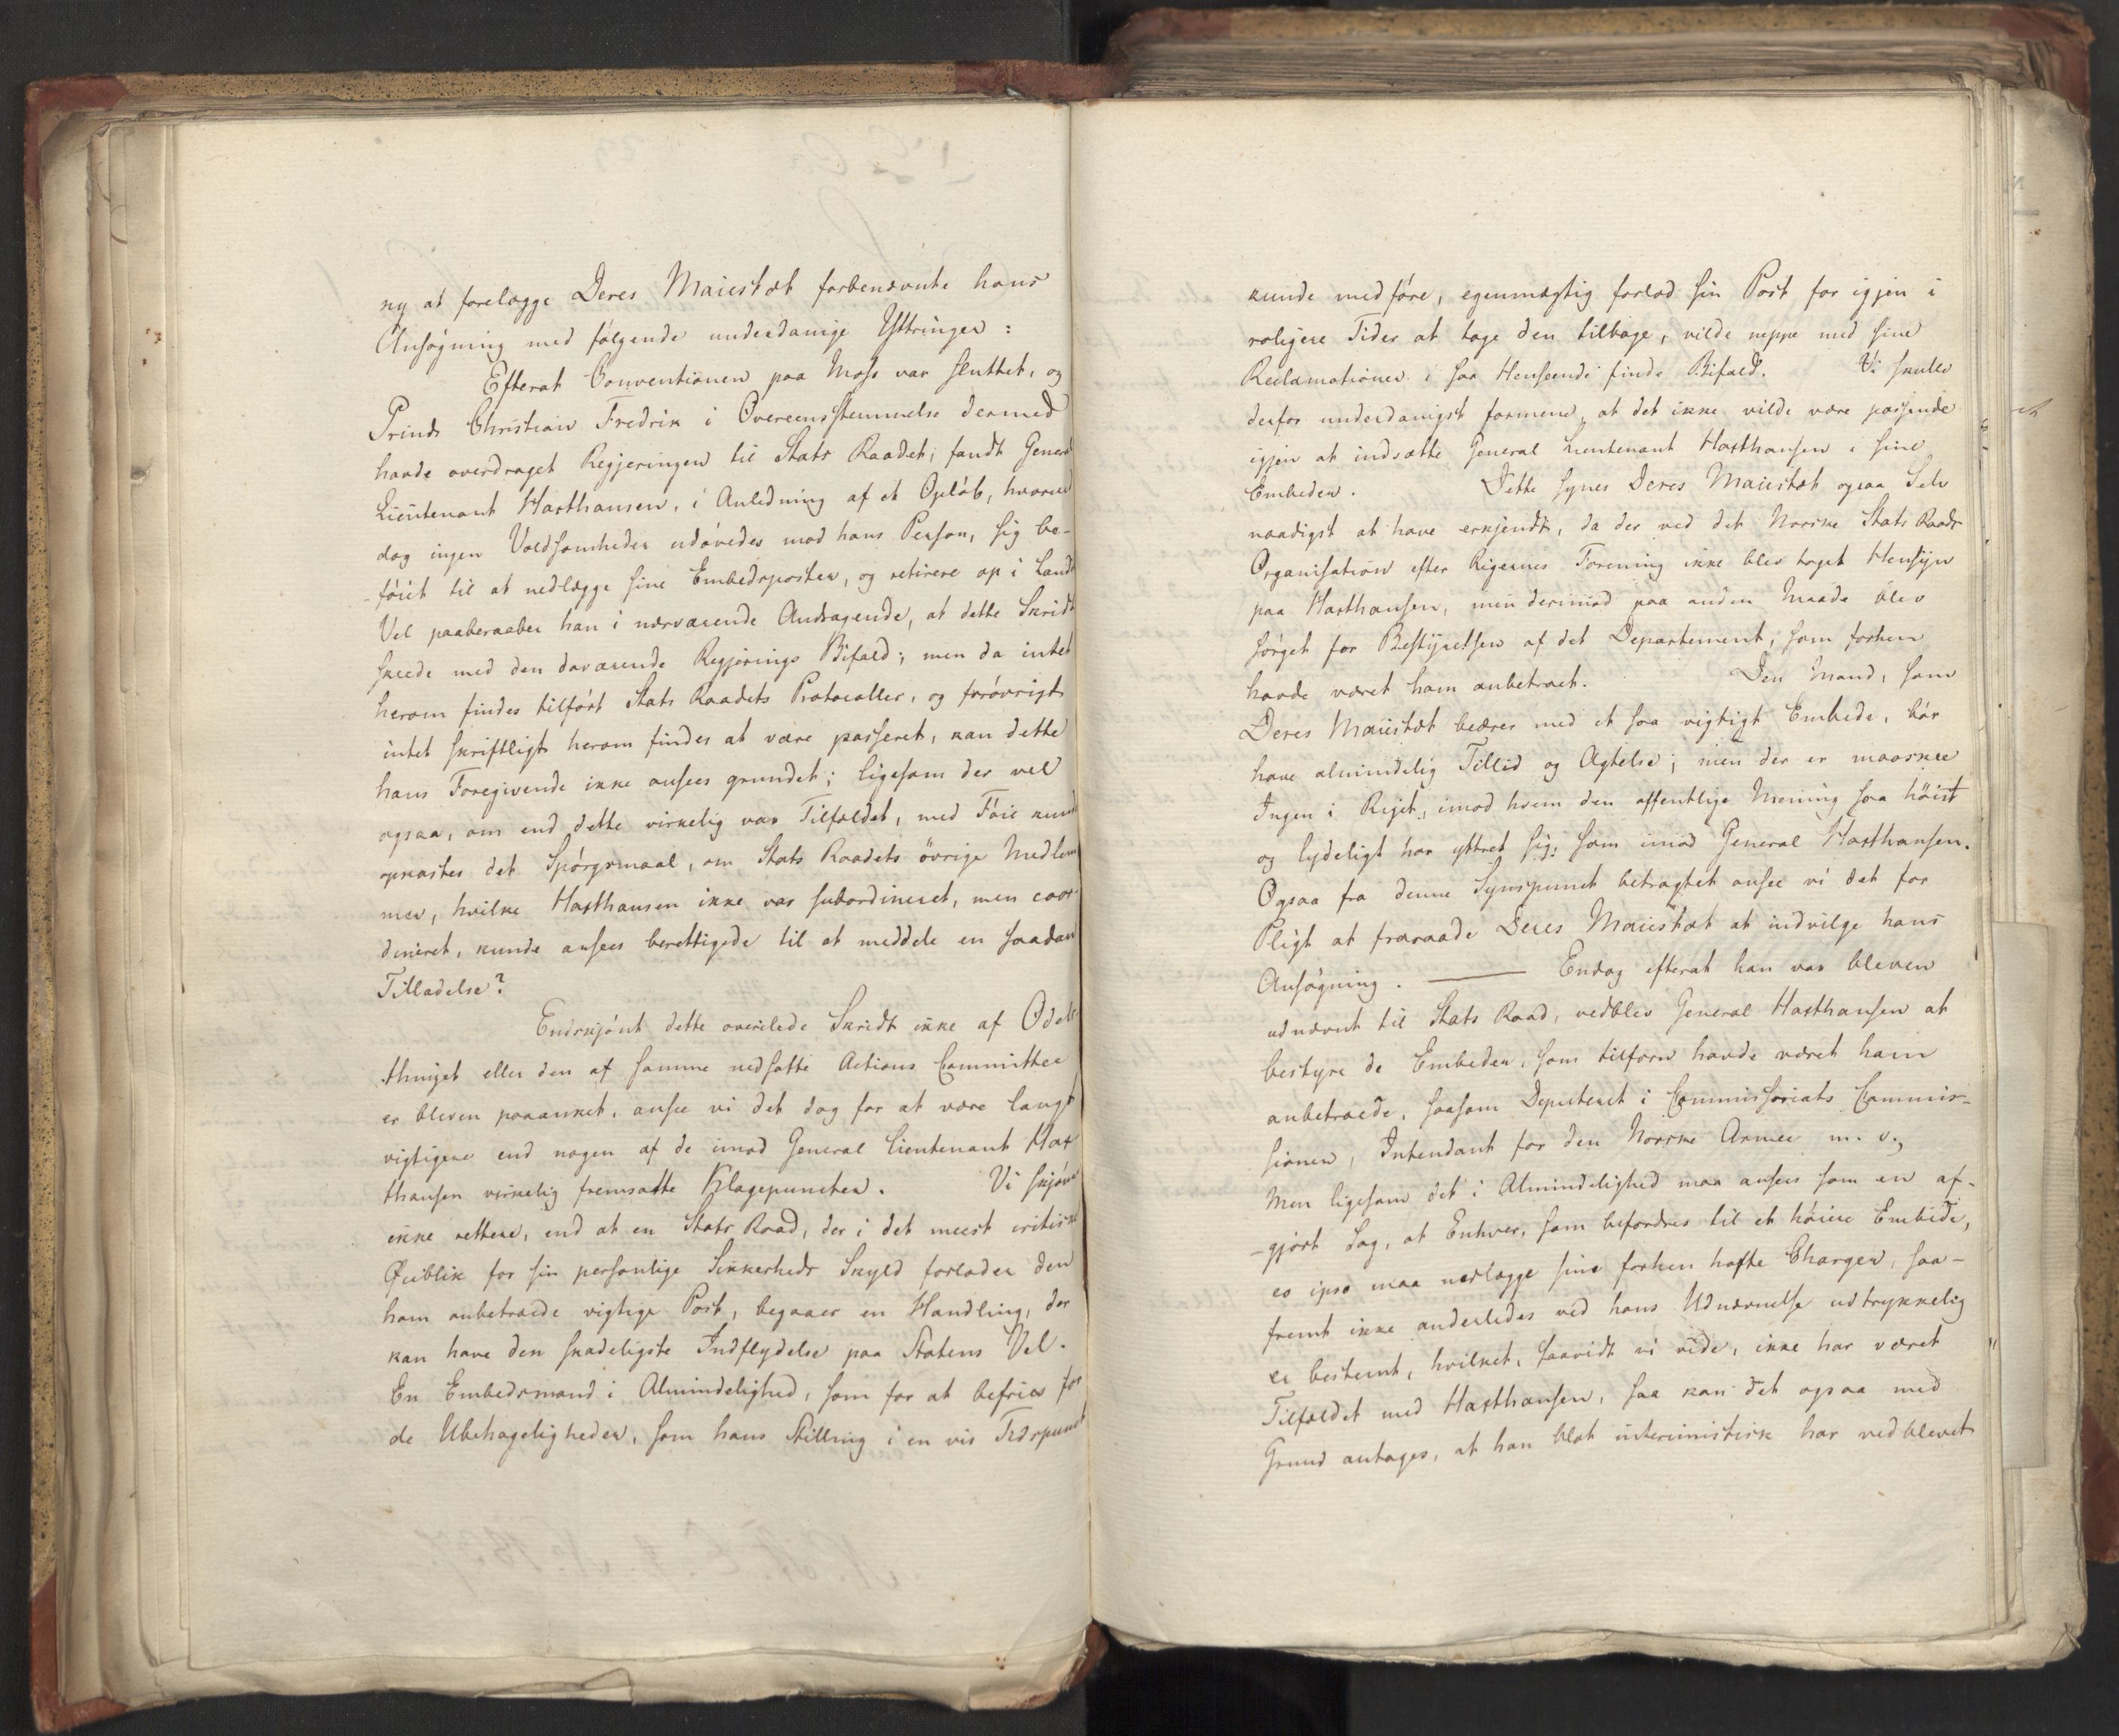 ny at forelægge Deres Maiestæt forbenævnte hans
Ansøgning med følgende underdanige Yttringer:
Efterat Conventionen paa Moss var sluttet, og
Prinds Christian Fredrik i Overeensstemmelse dermed
havde overdraget Regjeringen til Stats Raadet; fandt General
Lieutenant Haxthausen, i Anledning af et Opløb, hvorved
dog ingen Voldsomheder udøvedes mod hans Person, sig be-
-føiet til at nedlægge sine Embedsposter, og retirere op i Landet
Vel paaberaaber han i nærværende Andragende, at dette Skridt
skeede med den daværende Regjerings Bifald; men da intet
herom findes tilført Stats Raadets Protocoller, og forøvrigt
intet skriftligt herom findes at være passeret, kan dette
hans Foregivende ikke ansees grundet; ligesom der vel
ogsaa, om end dette virkelig var Tilfældet, med Føie kunde
opkastes det Spørgsmaal, om Stats Raadets øvrige Medlem
mer, hvilke Haxthausen ikke var subordineret, men coor-
dineret, kunde ansees berettigede til at meddele en saadan
Tilladelse?
Endskjønt dette overilede Skridt ikke af Odels-
thinget eller den af samme nedsatte Actions Committee
er bleven paaanket, ansee vi det dog for at være langt
vigtigere end nogen af de imod General Lieutenant Hax
thausen virkelig fremsatte Klagepuncter. Vi skjønne
ikke rettere, end at en Stats Raad, der i det meest critiske
Øieblik for sin personlige Sikkerheds Skyld forlader den
ham anbetroede vigtige Post, begaaer en Handling, der
kan have den skadeligste Indflydelse paa Statens Vel.
En Embedsmand i Almindelighed, som for at befries for
de Ubehageligheder, som hans Stilling i en vis Tidspunct
kunde medføre, egenmægtig forlod sin Post for igjen i
roligere Tider at tage den tilbage, vilde neppe med sine
Reclamationer i saa Henseende finde Bifald. Vi skulle
derfor underdanigst formene, at det ikke vilde være passende
igjen at indsætte General Lieutenant Haxthausen i sine
Embeder. Dette synes Deres Maiestæt ogsaa Selv
naadigst at have erkjendt, da der ved det Norske Stats Raads
Organisation efter Rigernes Forening ikke blev taget Hensyn
paa Haxthausen, men derimod paa anden Maade blev
sørget for Bestyrelsen af det Departement, som forhen
havde været ham anbetroet. Den Mand, som
Deres Maiestæt beærer med et saa vigtigt Embede, bør
have almindelig Tillid og Agtelse; men der er maaskee
Ingen i Riget, imod hvem den offentlige Mening saa høist
og lydeligt har yttret sig, som imod General Haxthausen.
Ogsaa fra denne Synspunct betragtet ansee vi det for
Pligt at fraraade Deres Maiestæt at indvilge hans
Ansøgning. — Endog efterat han var bleven
udnævnt til Stats Raad, vedblev General Haxthausen at
bestyre de Embeder, som tilforn havde været ham
anbetroede, saasom Deputeret i Commissariats Commis-
sionen, Intendant for den Norske Armee m. v.,
Men ligesom det i Almindelighed maa ansees som en af-
-gjort Sag, at Enhver, som befordres til et høiere Embede,
eo ipso maa nedlægge sine forhen havte Charger, saa-
fremt ikke anderledes ved hans Udnævnelse udtrykkelig
er bestemt, hvilket, saavidt vi vide, ikke har været
Tilfældet med Haxthausen, saa kan det ogsaa med
Grund antages, at han blot interimistisk har vedblevet